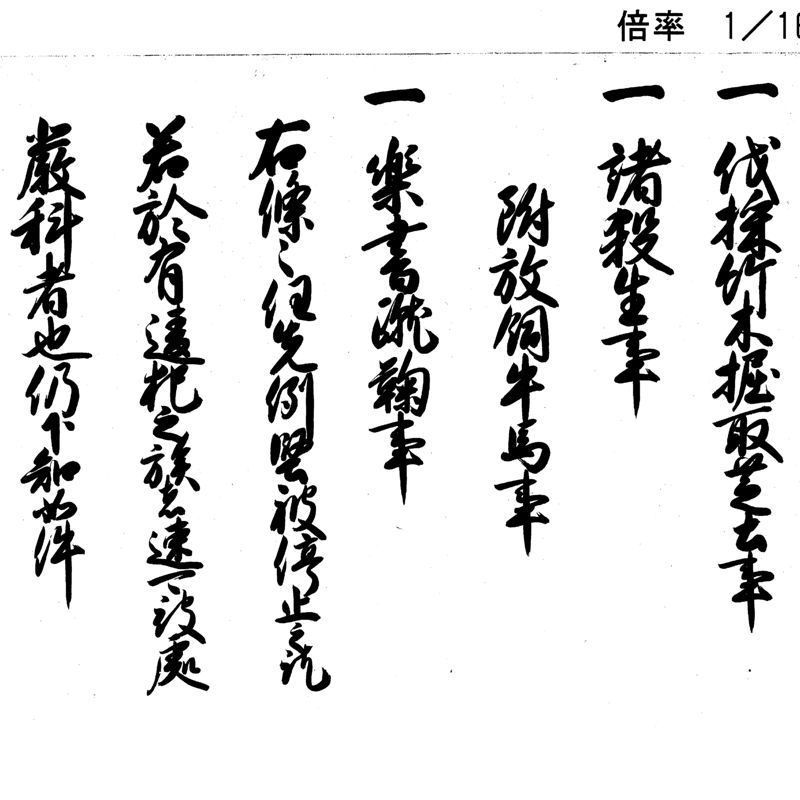 倍率 1/16
一 伐採竹木掘取芝去事
一 諸殺生事
附放飼牛馬事
一 楽書蹴鞠事
右條々任先例堅被停止之訖
若於有違犯之族者速可被處
厳科者也仍下知如件